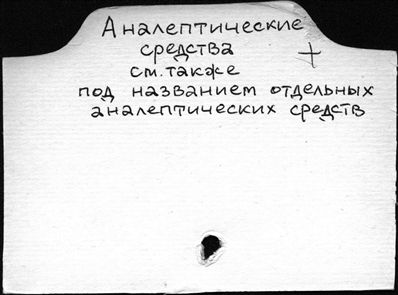 Аналептические
средства +
см. также
под названием отдельных
аналептических средств